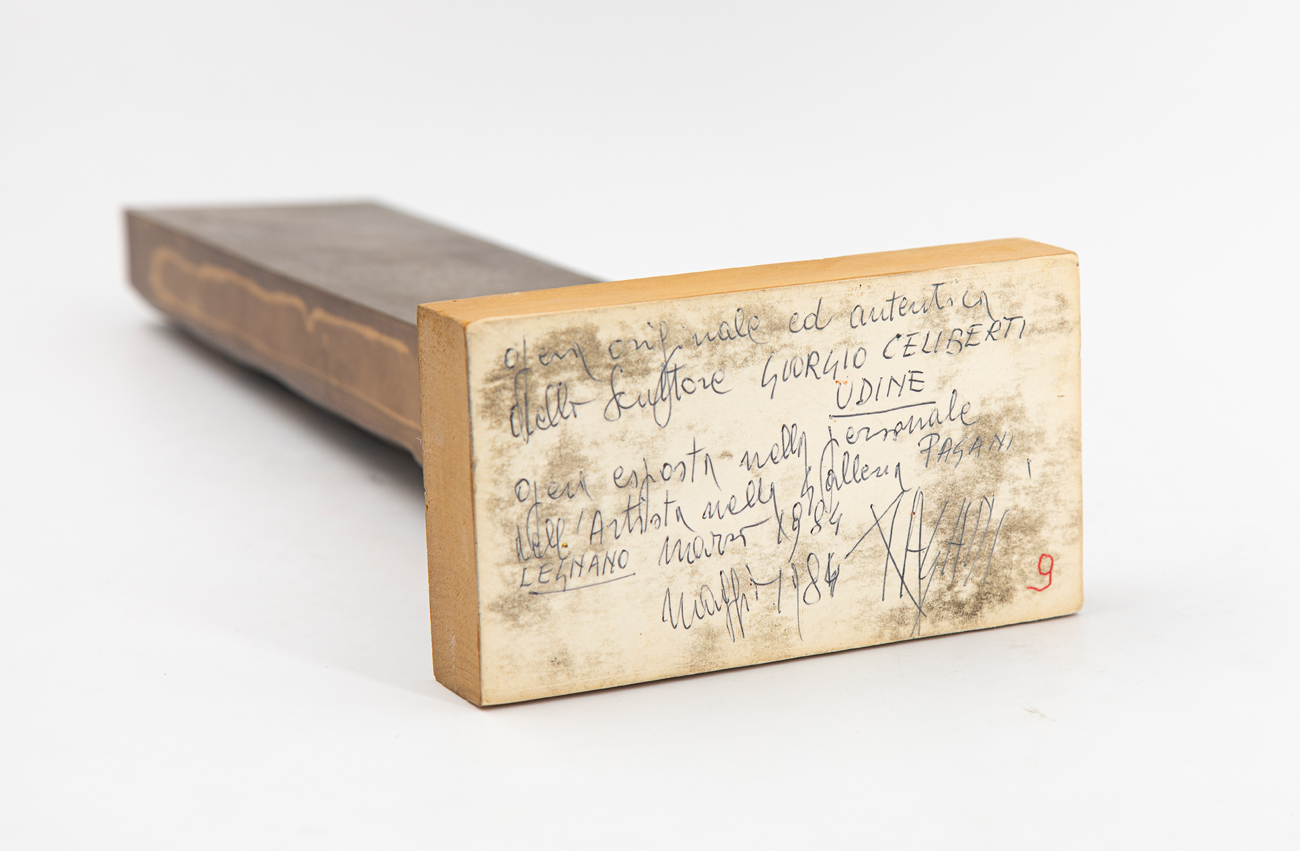 opera originale ed autentica
dello scultore GIORGIO CELIBERTI
UDINE
opera esposta nella personale
dell'Artista nella Galleria PAGANI
LEGNANO marzo 1984
maggio 1984 PAGANI
9